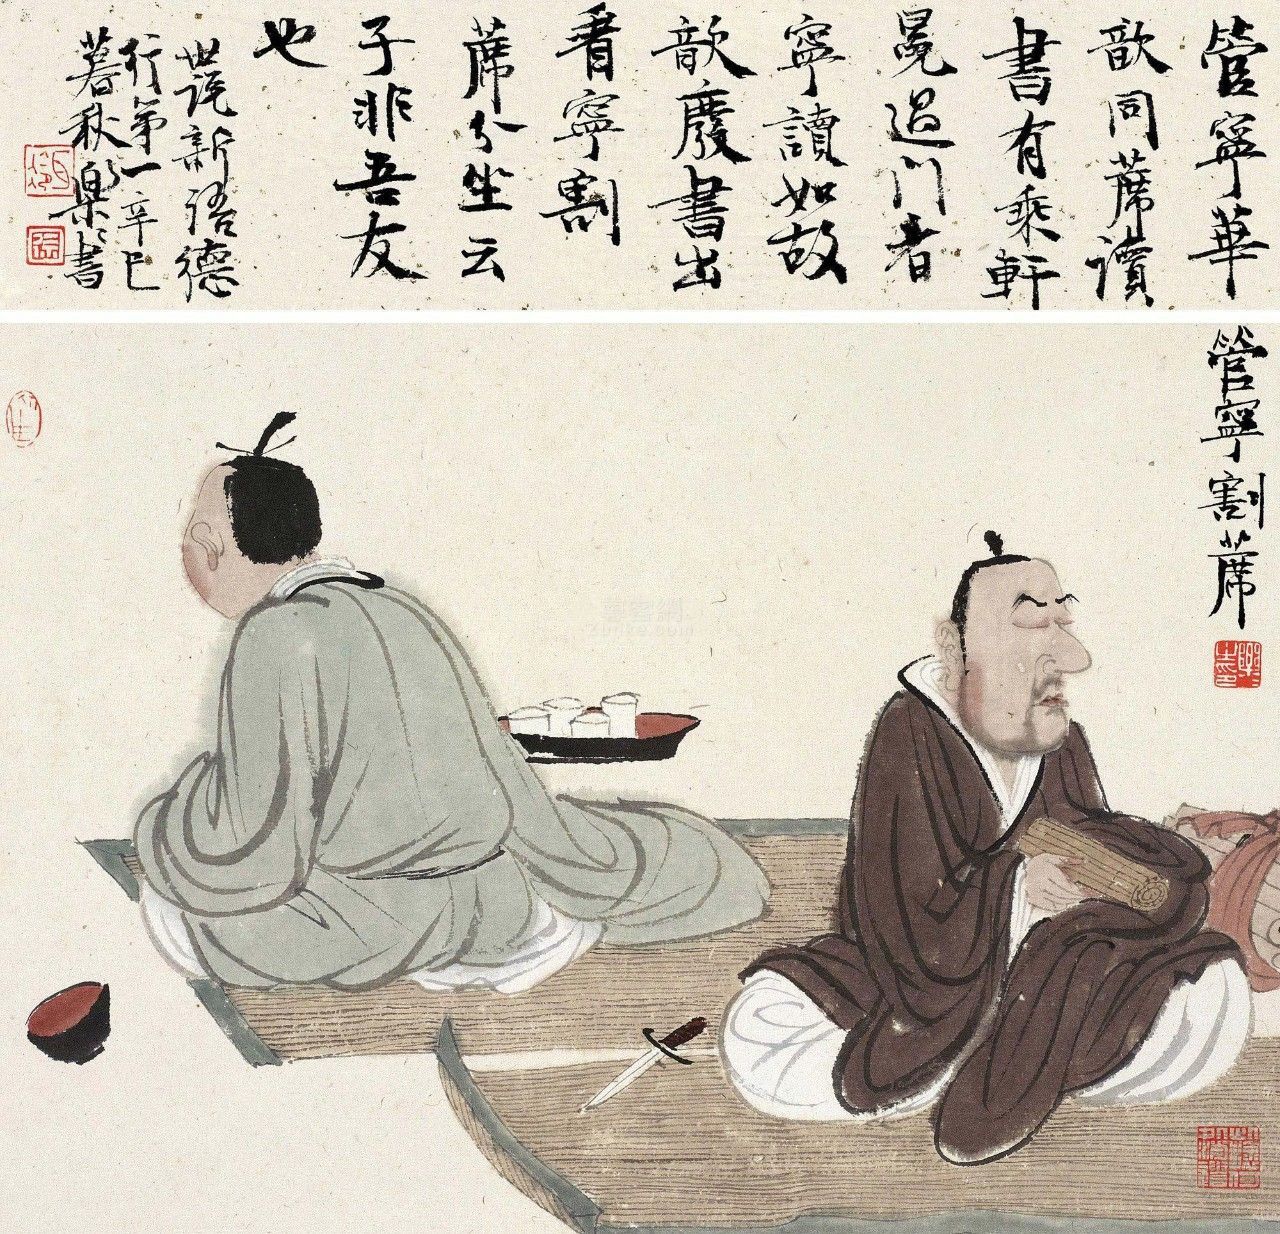 管寧華
歆同蓆讀
書有乘軒
冕過门者
寧讀如故
歆廢書出
看寧割
蓆分坐云
子非吾友
也
世説新语德
行第一辛巳
暮秋樂樂書
管寧割蓆